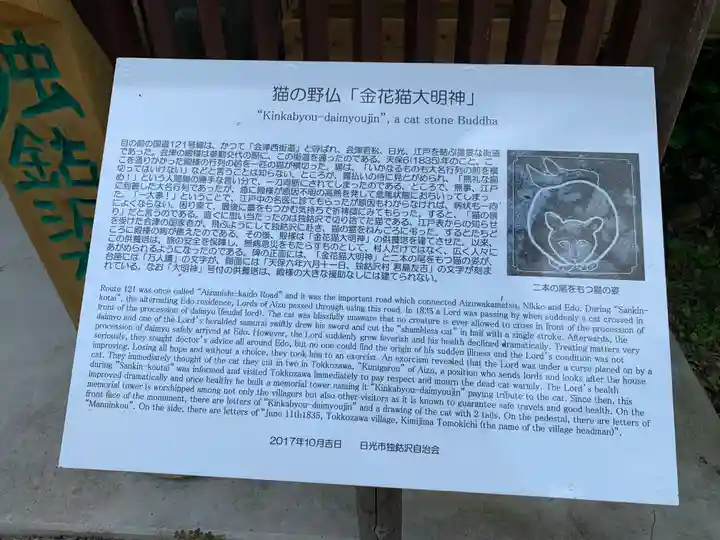 虫鈷沢
猫の野仏「金花猫大明神」
"Kinkabyou-daimyoujin", a cat stone Buddha
目の前の国道121号線は、かつて「会津西街道」と呼ばれ、会津若松、日光、江戸を結ぶ重要な街道
であった。会津の殿様は参勤交代の際に、この街道を通ったのである。天保6(1835)年のこと、こ
こを通りかかった殿様の行列の前を一匹の猫が横切った。猫は、「いかなるものも大名行列の前を横
切ってはいけない」などと言うことは知らない。ところが、露払いの侍に見とがめられ、「無礼な猫
め!」という人間側の勝手な言い分で、一刀両断にされてしまったのである。ところで、無事、江戸
に到着した大名行列であったが、急に殿様が原因不明の高熱を発して危篤状態におちいってしまっ
た。「一大事!」ということで、江戸中の名医に診てもらったが原因もわからなければ、病状も一向
によくならない。困り果て、最後に藁をもつかむ気持ちで祈祷師にみてもらった。すると、「猫の祟
り」だと言うのである。直ぐに思い当たったのは独鈷沢で切り捨てた猫である。江戸表からの知らせ
を受けた会津の国家老が、飛ぶようにして独鈷沢に赴き、猫の霊をねんごろに弔った。するとたちど
ころに殿様の病が癒えたのである。その後、殿様は「金花猫大明神」の供養塔を建てさせた。以来、
この供養塔は、旅の安全を保障し、無病息災をもたらすものとして、村人だけではなく、広く人々に
あがめられるようになったのである。碑の正面には、「金花猫大明神」と二本の尾をもつ猫の姿が、
台座には「万人講」の文字が、側面には「天保六年六月十一日、独鈷沢村 君島友吉」の文字が刻ま
れている。なお「大明神」号付の供養塔は、殿様の大きな援助なしには建てられない。
二本の尾をもつ猫の姿
Route 121 was once called "Aizunishi-kaido Road" and it was the important road which connected Aizuwakamatsu, Nikko and Edo. During "Sankin-
koutai", the alternating Edo residence, Lords of Aizu passed through using this road. In 1835 a Lord was passing by when suddenly a cat crossed in
front of the procession of daimyo (feudal lord). The cat was blissfully unaware that no creature is ever allowed to cross in front of the procession of
daimyo and one of the Lord's heralded samurai swiftly drew his sword and cut the "shameless cat" in half with a single stroke. Afterwards, the
procession of daimyo safely arrived at Edo. However, the Lord suddenly grew feverish and his health declined dramatically. Treating matters very
seriously, they sought doctor's advice all around Edo, but no one could find the origin of his sudden illness and the Lord's condition was not
improving. Losing all hope and without a choice, they took him to an exorcist. An exorcism revealed that the Lord was under a curse placed on by a
cat. They immediately thought of the cat they cut in two in Tokkozawa, "Kunigarou" of Aizu, a position who sends lords and looks after the house
during "Sankin-koutai" was informed and visited Tokkozawa immediately to pay respect and mourn the dead cat warmly. The Lord's health
improved dramatically and once healthy he built a memorial tower naming it "Kinkabyou-daimyoujin" paying tribute to the cat. Since then, this
memorial tower is worshipped among not only the villagers but also other visitors as it is known to guarantee safe travels and good health. On the
front face of the monument, there are letters of "Kinkabyou-daimyoujin" and a drawing of the cat with 2 tails. On the pedestal, there are letters of
"Manninkou". On the side, there are letters of "June 11th1835, Tokkozawa village, Kimijima Tomokichi (the name of the village headman)".
2017年10月吉日 日光市独鈷沢自治会